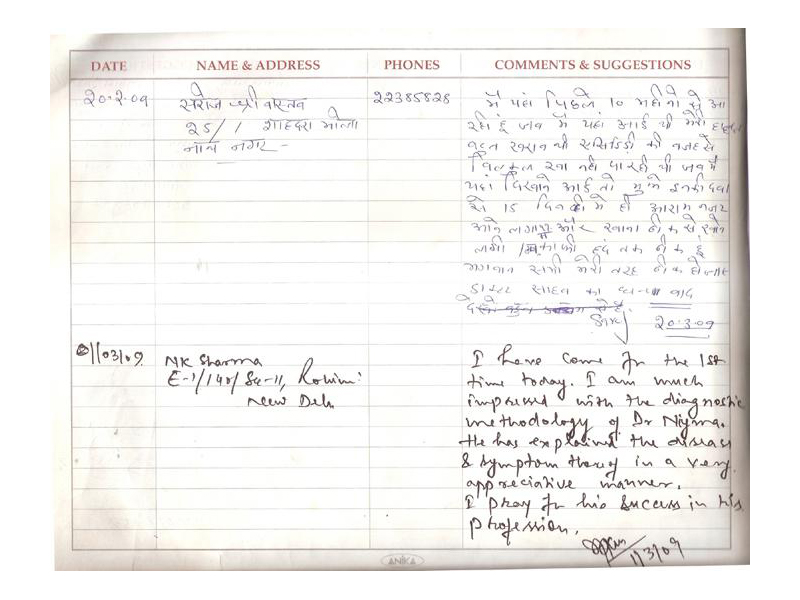 DATE NAME & ADDRESS PHONES COMMENTS & SUGGESTIONS
20-2-09 सरोज श्रीवास्तव 22385828
25/1 शाहदरा भोला
नाथ नगर -
मैं यहां पिछले 10 महीनो से आ
रही हूं जब मैं यहां आई थी मेरी हालत
बहुत खराब थी एसिडिटी की वजह से
बिलकुल खा नही पा रही थी जब मैं
यहां दिखाने आई तो मुझे इनकी दवा
से 15 दिन में ही आराम नजर
आने लगा और खाना ठीक से खाने
लगी काफी हद तक ठीक हूं
भगवान सभी मेरी तरह ठीक हो जाए
डाक्टर साहब का धन्यवाद
20-3-09
01/03/09 NK Sharma
E-1/140/Sec-11, Rohini
New Delhi
I have come for the 1st
time today. I am much
impressed with the diagnostic
methodology of Dr Niyma.
He has explained the disease
& symptom theory in a very
appreciative manner.
I pray for his success in his
profession.
1/3/09
ANIKA